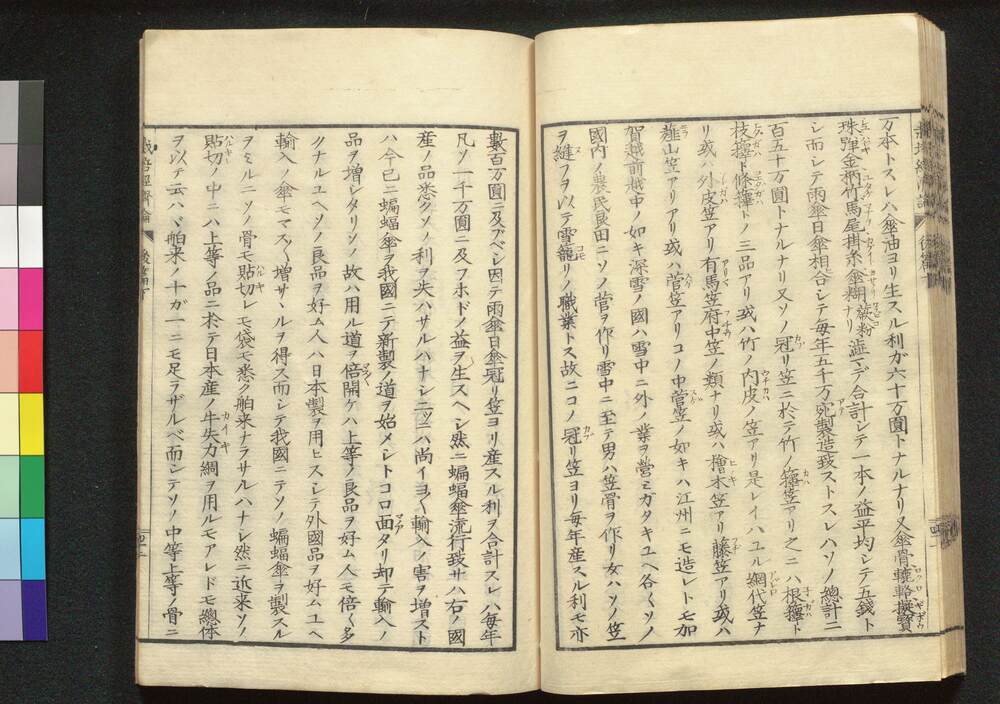 万本トスレハ傘油ヨリ生スル利ガ六十万圓トナルナリ又傘骨轆轤擬寳
珠彈金柄竹馬尾掛糸傘糊蕨粉澁マデ合計シテ一本ノ益平均シテ五錢ト
シ而シテ雨傘日傘相合シテ毎年五千万宛製造致ストスレハソノ總計二
百五十万圓トナルナリ又ソノ冠リ笠ニ於テ竹ノ籜笠アリ之ニハ根籜ト
枝籜ト條籜トノ三品アリ或ハ竹ノ内皮ノ笠アリ是レイハユル網代笠ナ
リ或ハ外皮笠アリ有馬笠府中笠ノ類ナリ或ハ檜木笠アリ藤笠アリ或ハ
山笠アリアリ或ハ菅笠アリコノ中菅笠ノ如キハ江州ニモ造レトモ加
賀越前越中ノ如キ深雪ノ國ハ雪中ニ外ノ業ヲ營ミガタキユヘ谷〱ソノ
國内ノ農民良田ニソノ菅ヲ作リ雪中ニ至テ男ハ笠骨ヲ作リ女ハソノ笠
ヲ縫フヲ以テ雪籠リノ職業トス故ニコノ冠リ笠ヨリ毎年産スル利モ亦
數百万圓ニ及フベシ因テ雨傘日傘冠リ笠ヨリ産スル利ヲ合計スレハ毎年
凡ソ一千万圓ニ及フホドノ益ヲ生スヘシ然ニ蝙蝠傘流行致サハ右ノ國
産ノ品悉クソノ利ヲ失ハサルハナシ二ツニハ尚イヨ〱輸入ノ害ヲ増スト
ハ今已ニ蝙蝠傘ヲ我國ニテ新製ノ道ヲ始メシトコロ面タリ却テ輸入ノ
品ヲ増シタリソノ故ハ用ル道ヲ倍開ケハ上等ノ良品ヲ好ム人モ倍〱多
クナルユヘソノ良品ヲ好ム人ハ日本製ヲ用ヒスシテ外國品ヲ好ムユヘ
輸入ノ傘モマス〱増サヽルヲ得ス而シテ我國ニテソノ蝙蝠傘ヲ製スル
ヲミルニソノ骨モ貼切レモ袋モ悉ク舶来ナラサルハナシ然ニ近来ソノ
貼切ノ中ニハ上等ノ品ニ於テ日本産ノ牛失力綢ヲ用ルモアレドモ總体
ヲ以テ云ハヾ舶来ノ十ガ一ニモ足ラザルベ而シテソノ中等上等ノ骨ニ